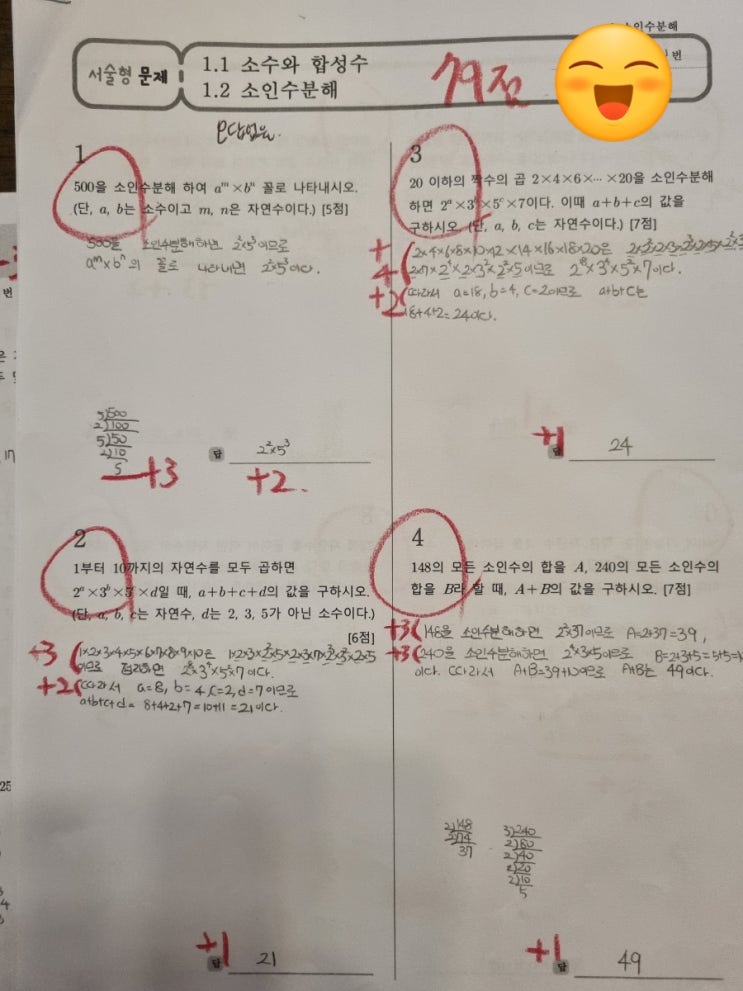 소인수분해
번
서술형 문제
1.1 소수와 합성수
1.2 소인수분해
79점
1
500을 소인수분해 하여 aᵐ×bⁿ 꼴로 나타내시오.
(단, a, b는 소수이고 m, n은 자연수이다.) [5점]
500을 소인수분해하면 2²×5³이므로
aᵐ×bⁿ의 꼴로 나타내면 2²×5³이다.
5)500
2)100
5)50
2)10
5
+3
답 2²×5³
+2
2
1부터 10까지의 자연수를 모두 곱하면
2ᵃ×3ᵇ×5ᶜ×d일 때, a+b+c+d의 값을 구하시오.
(단, a, b, c는 자연수, d는 2, 3, 5가 아닌 소수이다.)
[6점]
+3
1×2×3×4×5×6×7×8×9×10은 1×2×3×2²×5×2×3×7×2³×3²×2×5
이므로 정리하면 2⁸×3⁴×5²×7이다.
+2
따라서 a=8, b=4, c=2, d=7이므로
a+b+c+d = 8+4+2+7=10+11=21이다.
+1
답 21
3
20 이하의 짝수의 곱 2×4×6×⋯×20을 소인수분해
하면 2ᵃ×3ᵇ×5ᶜ×7이다. 이때 a+b+c의 값을
구하시오. (단, a, b, c는 자연수이다.) [7점]
+
4
2×4×6×8×10×12×14×16×18×20은
2×7×2⁴×2×3²×2²×5이므로 2¹⁸×3⁴×5²×7이다.
+2
따라서 a=18, b=4, c=2이므로 a+b+c는
18+4+2=24이다.
+1
답 24
4
148의 모든 소인수의 합을 A, 240의 모든 소인수의
합을 B라 할 때, A+B의 값을 구하시오. [7점]
+3
148을 소인수분해하면 2²×37이므로 A=2+37=39,
+3
240을 소인수분해하면 2⁴×3×5이므로 B=2+3+5=5+5=1
이다. 따라서 A+B=39+10이므로 A+B는 49이다.
2)148
2)74
37
3)240
2)80
2)40
2)20
2)10
5
+1
답 49